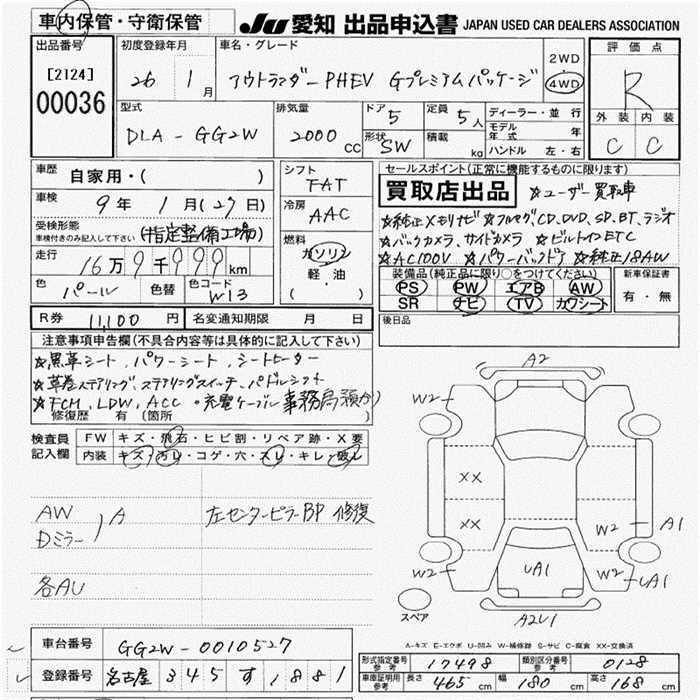 車内保管・守衛保管
JU 愛知 出品申込書 JAPAN USED CAR DEALERS ASSOCIATION
出品番号
[2124]
00036
初度登録年月
26 1月
車名・グレード
アウトランダーPHEV Gプレミアムパッケージ
2WD
4WD
評価点
R
外装 内装
C C
型式
DLA-GG2W
排気量
2000cc
ドア 5
形状 SW
定員 5人
積載 kg
ディーラー・並行
モデル年式 年
ハンドル 左・右
車歴 自家用・( )
車検 9年 1月(27日)
受検形態
車検付きのみ記入して下さい (指定整備工場)
走行 16万9千999km
色 パール 色替 色コード W13
シフト
FAT
冷房
AAC
燃料
ガソリン
軽・油
( )
セールスポイント(正常に機能するものに限ります)
買取店出品 ☆ユーザー買取車
☆純正メモリナビ ☆フルセグCD,DVD,SD,BT,ラジオ
☆バックカメラ、サイドカメラ ☆ビルトインETC
☆AC100V ☆パワーバックドア ☆純正18AW
装備品(純正品に限り○をつけてください) 新車保証書
PS PW エアB AW
SR ナビ TV カワシート
有・無
後日品
R券 11,100円 名変通知期限 月 日
注意事項申告欄(不具合内容等は具体的に記入して下さい)
☆黒革シート、パワーシート、シートヒーター
☆革巻ステアリング、ステアリングスイッチ、パドルシフト
☆FCM、LDW、ACC ・充電ケーブル事務局預かり
修復歴 有(箇所
検査員記入欄
FW キズ・飛石・ヒビ割・リペア跡・X要
内装 キズ・汚レ・コゲ・穴・スレ・キレ・破レ
AW
Dミラー A
左センターピラーBP 修復
各AU
A2
W2
W2
XX
XX
W2 A1
W2
UA1
W2 UA1
スペア
A2U1
A-キズ E-エクボ U-凹み W-補修跡 S-サビ C-腐食 XX-交換済
車台番号 GG2W-0010527
登録番号 名古屋 345 す 1881
形式指定番号 参考 17498 類別区分番号 参考 0128
車庫証明用 参考 長さ 465cm 幅 180cm 高さ 168cm